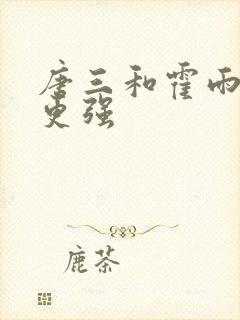 唐三和霍雨
更强
鹿茶